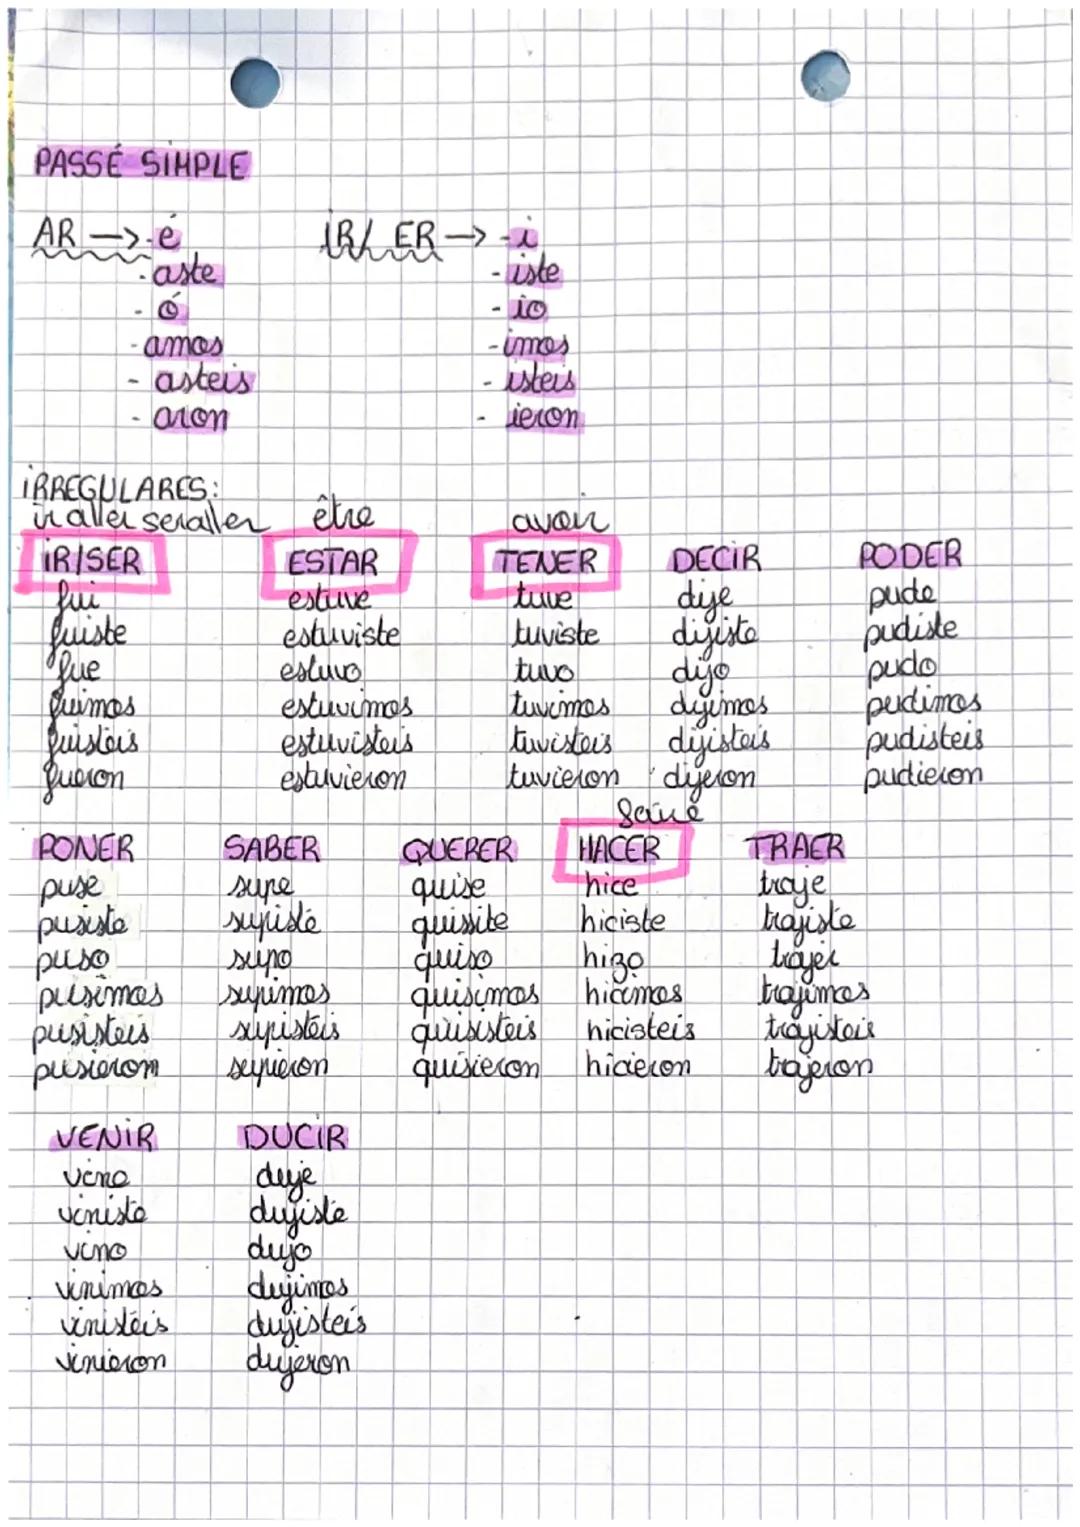 PASSÉ SIMPLE
AR -> - é IR/ ER -> - i
- aste - iste
- ó - io
- amos - imos
- asteis - isteis
- aron - ieron
IRREGULARES:
ir aller ser aller être avoir
IR/SER ESTAR TENER DECIR PODER
fui estuve tuve dije pude
fuiste estuviste tuviste dijiste pudiste
fue estuvo tuvo dijo pudo
fuimos estuvimos tuvimos dijimos pudimos
fuisteis estuvisteis tuvisteis dijisteis pudisteis
fueron estuvieron tuvieron dijeron pudieron
faire
PONER SABER QUERER HACER TRAER
puse supe quise hice traje
pusiste supiste quissite hiciste trajiste
puso supo quiso hizo
pusimos supimos quisimos hicimos trajimos
pusisteis supisteis quisisteis hicisteis trajisteis
pusierom supieron quisieron hicieron trajeron
VENIR DUCIR
vine duje
viniste dujiste
vino dujo
vinimos dujimos
vinisteis dujisteis
vinieron dujeron